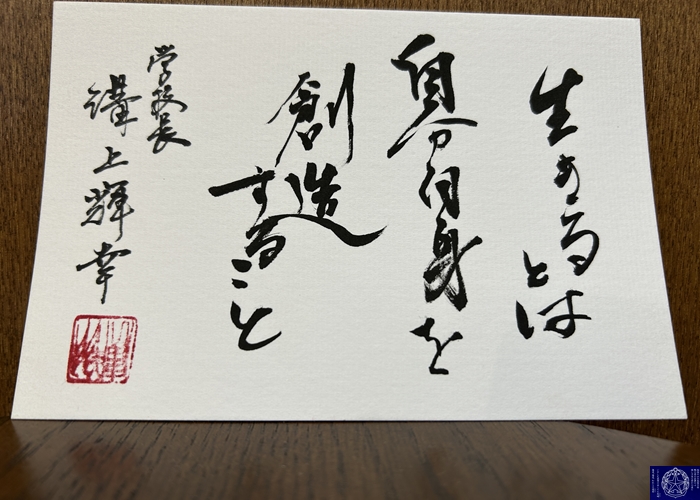 生きるとは
自分自身を
創造
すること
学校長
溝上輝幸